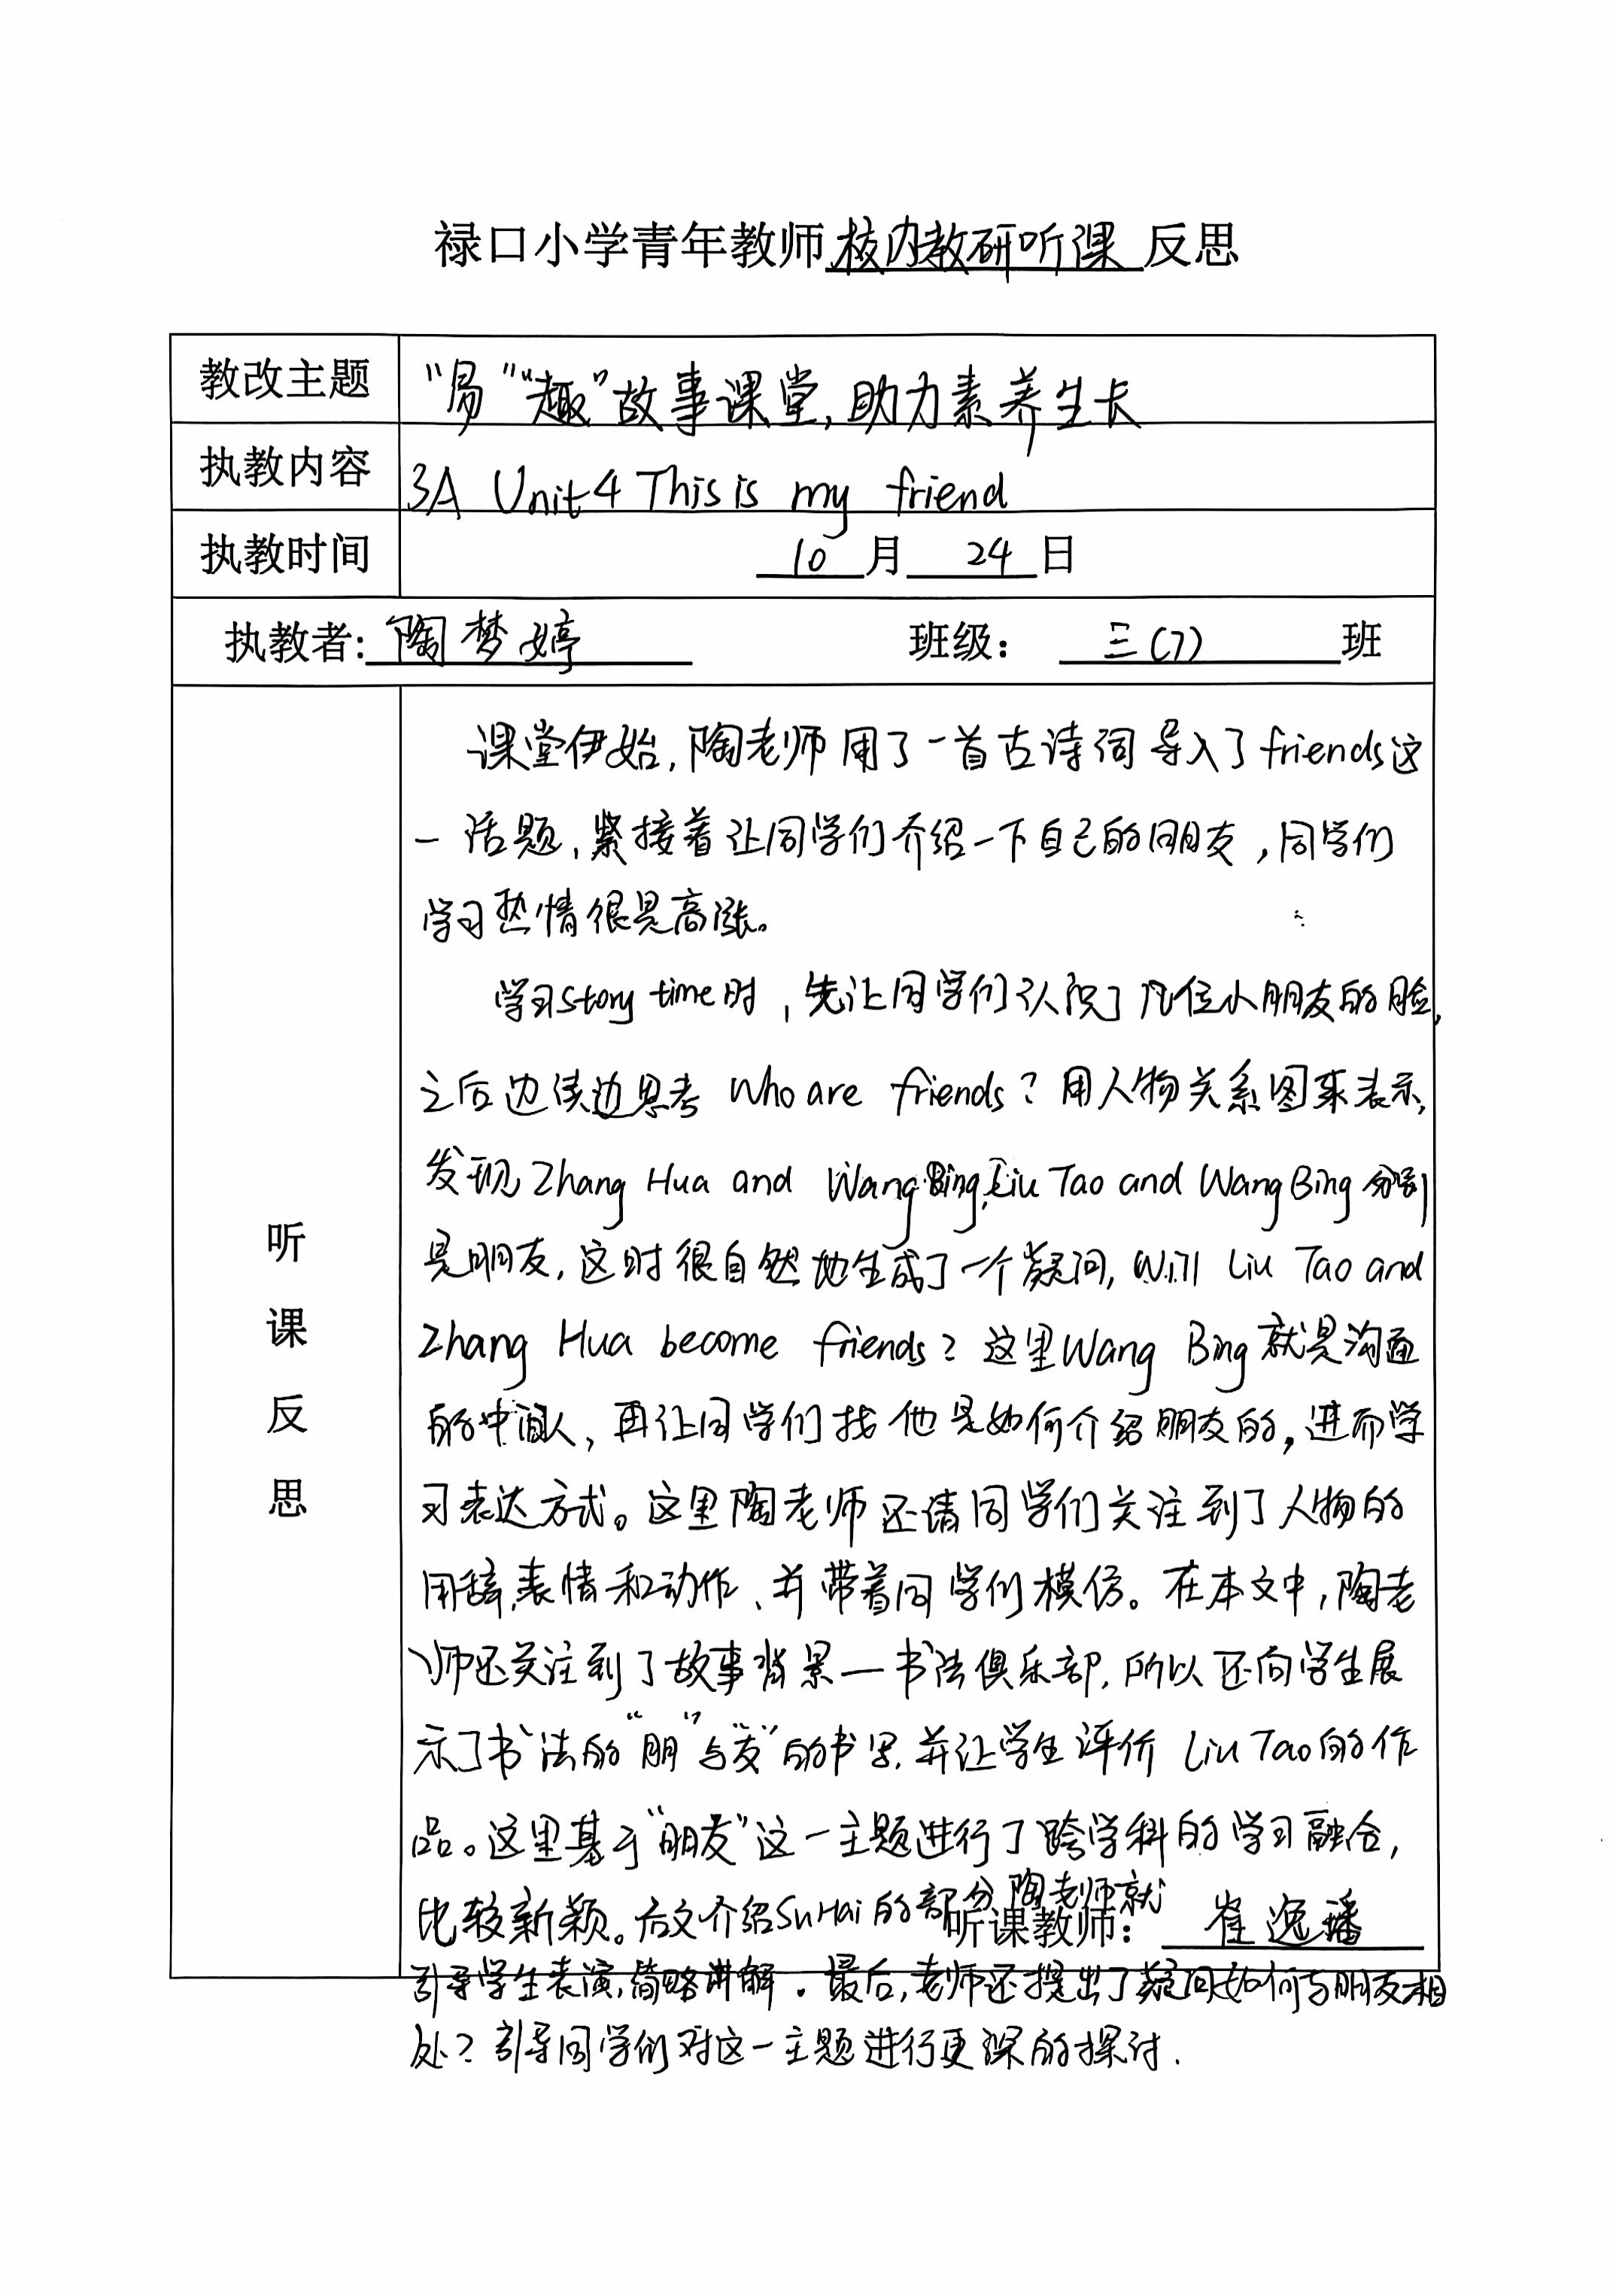 禄口小学青年教师校内教研听课反思
教改主题 “易”“趣”故事课堂,助力素养生长
执教内容 3A Unit4 This is my friend
执教时间 10月24日
执教者:陶梦婷 班级: 三(7)班
课堂伊始,陶老师用了一首古诗词导入了friends这
一话题,紧接着让同学们介绍一下自己的朋友,同学们
学习热情很是高涨。
学习story time时,先让同学们认识了几位小朋友的脸,
之后边读边思考 Who are friends?用人物关系图来表示,
发现 Zhang Hua and Wang Bing, Liu Tao and Wang Bing 分别
是朋友,这时很自然地生成了一个疑问, Will Liu Tao and
Zhang Hua become friends?这里Wang Bing就是沟通
的中间人,再让同学们找他是如何介绍朋友的,进而学
习表达方式。这里陶老师还请同学们关注到了人物的
用辞、表情和动作、并带着同学们模仿。在本文中,陶老
师还关注到了故事背景—书法俱乐部,所以还向学生展
示了书法的“朋”与“友”的书写,并让学生评价 Liu Tao的作
品。这里基于“朋友”这一主题进行了跨学科的学习融合,
比较新颖。后文介绍Su Hai的部分陶老师就
听课教师: 崔逸璠
引导学生表演,简略讲解。最后,老师还提出了疑问如何与朋友相
处?引导同学们对这一主题进行更深的探讨.
听
课
反
思